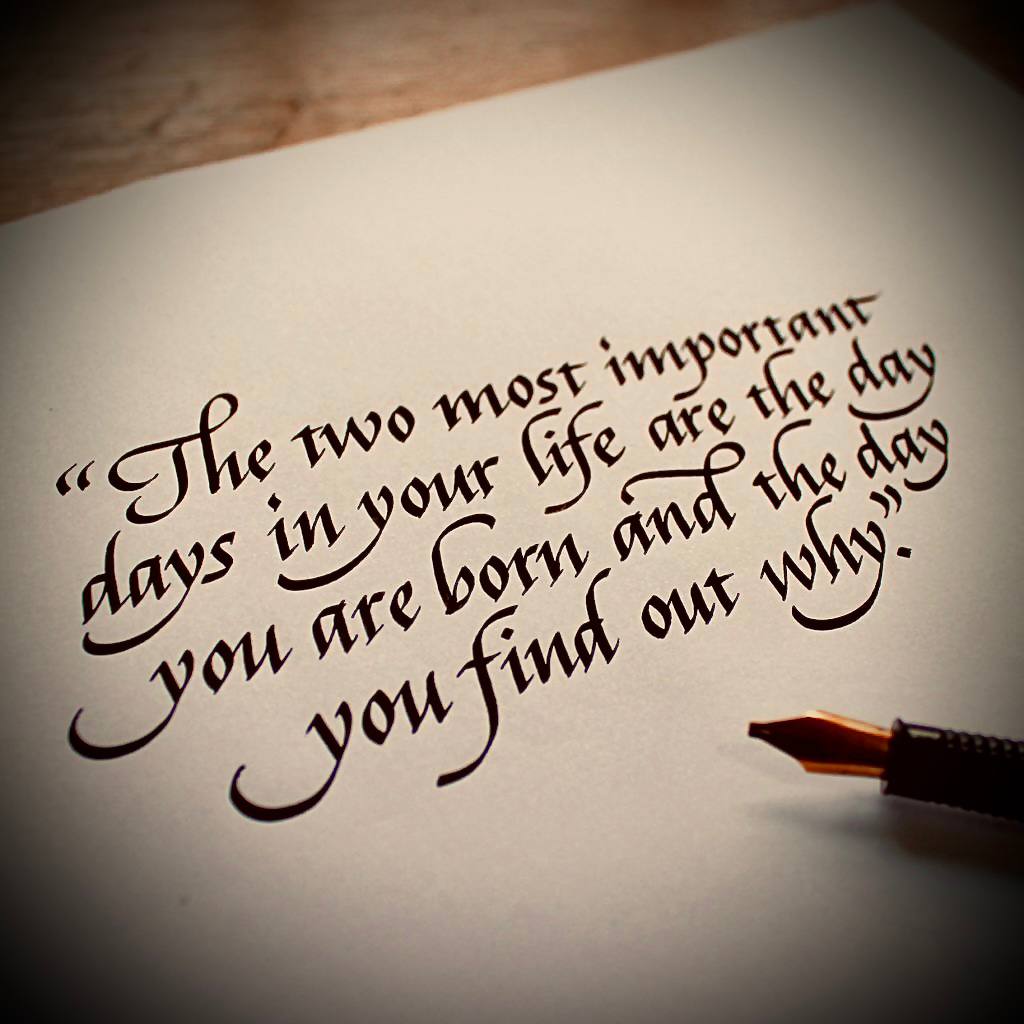 “The two most important
days in your life are the day
you are born and the day
you find out why”.